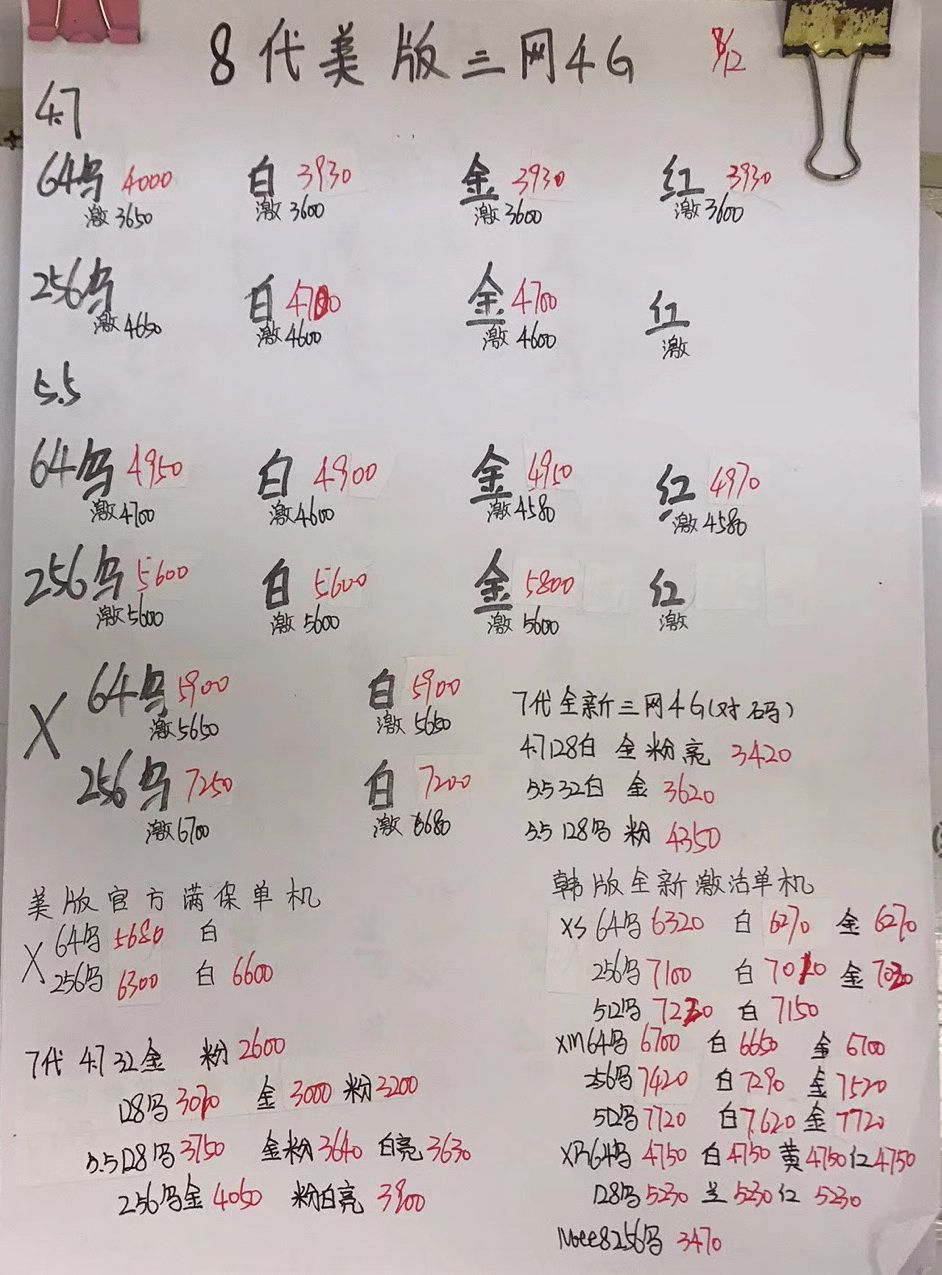 8代美版三网4G 8/12
4.7
64乌 4000 白 3930 金 3930 红 3930
激3650 激3600 激3600 激3600
256乌 白 4700 金 4700 红
激4650 激4600 激4600 激
5.5
64乌 4950 白 4900 金 4950 红 4970
激4700 激4600 激4580 激4580
256乌 5600 白 5600 金 5800 红
激5600 激5600 激5600 激
X 64乌 5900 白 5900
激5650 激5650
256乌 7250 白 7200
激6700 激6680
7代全新三网4G(对码)
4.7 128白 金 粉 亮 3420
5.5 32白 金 3620
5.5 128乌 粉 4350
美版官方满保单机
X 64乌 5680 白
256乌 6300 白 6600
7代 4.7 32金 粉 2600
128乌 3070 金 3000 粉 3200
5.5 128乌 3750 金粉 3640 白亮 3630
256乌金 4050 粉白亮 3900
韩版全新激活单机
XS 64乌 6320 白 6270 金 6270
256乌 7100 白 7010 金 7030
512乌 7230 白 7150
XM 64乌 6700 白 6650 金 6700
256乌 7420 白 7290 金 7520
512乌 7720 白 7620 金 7720
XR 64乌 4750 白 4750 黄 4750 红 4750
128乌 5230 兰 5230 红 5230
Note8 256乌 3470